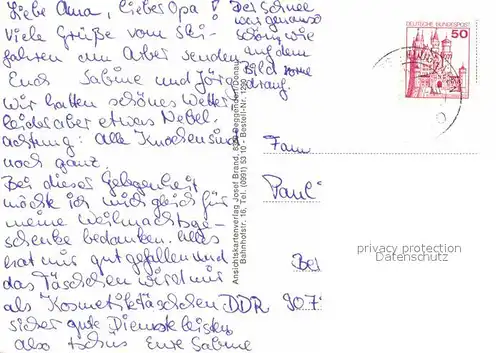 Liebe Oma, lieber Opa!
Viele Grüße vom Ski-
fahren am Arber senden
Euch Sabine und Jürgen
Wir hatten schönes Wetter
leider aber etwas Nebel.
Achtung: alle Knochen sind
noch ganz.
Bei dieser Gelegenheit
möchte ich mich gleich für
meine Weihnachtsge-
schenke bedanken. Alles
hat mir gut gefallen und
das Täschchen wird mir
als Kosmetiktäschchen
sicher gute Dienste leisten
also tschüs Eure Sabine
Der Schnee
war genauso
schön wie
auf dem
Bild vorne
drauf.
Ansichtskartenverlag Josef Brand, 8360 Deggendorf/Donau
Bahnhofstr. 16, Tel. (0991) 5310 - Bestell-Nr. 1290
DEUTSCHE BUNDESPOST
50
Fam
Paul
Ber
DDR 907
privacy protection
Datenschutz